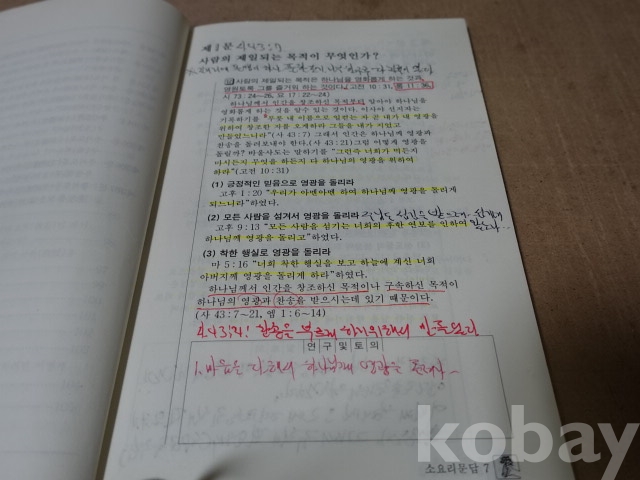 제1문 사43:7
사람의 제일되는 목적이 무엇인가?
답 사람의 제일되는 목적은 하나님을 영화롭게 하는 것과
영원토록 그를 즐거워 하는 것이다.(고전 10:31, 롬 11:36,
시 73:24~26, 요 17:22~24)
하나님께서 인간을 창조하신 목적부터 알아야 하나님을
영화롭게 하는 것을 알수 있는 것이다. 이사야 선지자는
기록하기를 "무릇 내 이름으로 일컫는 자 곧 내가 내 영광을
위하여 창조한 자를 오게하라 그들을 내가 지었고
만들었느니라"(사 43:7) 그래서 인간은 하나님께 영광과
찬송을 돌려보내야 한다.(사 43:21)그럼 어떻게 영광을
돌릴까? 바울사도는 말하기를 "그런즉 너희가 먹든지
마시든지 무엇을 하든지 다 하나님의 영광을 위하여
하라"(고전 10:31)
(1) 긍정적인 믿음으로 영광을 돌리라
고후 1:20 "우리가 아멘아멘 하여 하나님께 영광을 돌리게
되느니라"하였다.
(2) 모든 사람을 섬겨서 영광을 돌리라
고후 9:13 "모든 사람을 섬기는 너희의 후한 연보를 인하여
하나님께 영광을 돌리고"하였다.
(3) 착한 행실로 영광을 돌리라
마 5:16 "너희 착한 행실을 보고 하늘에 계신 너희
아버지께 영광을 돌리게 하라"하였다.
하나님께서 인간을 창조하신 목적이나 구속하신 목적이
하나님의 영광과 찬송을 받으시는데 있기 때문이다.
(사 43:7~21, 엡 1:6~14)
찬송을 부르게 하기위해서
연구 및 토의
1. 마음을 다해서 하나님께 영광을
소요리문답 7
kobay